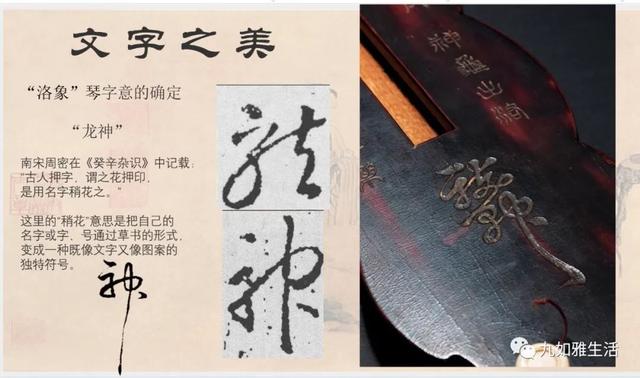 文字之美
“洛象”琴字意的确定
“龙神”
南宋周密在《癸辛杂识》中记载:
“古人押字，谓之花押印，
是用名字稍花之。”
这里的“稍花”意思是把自己的
名字或字、号通过草书的形式，
变成一种既像文字又像图案的
独特符号。
神
龙
神
神
九如雅生活